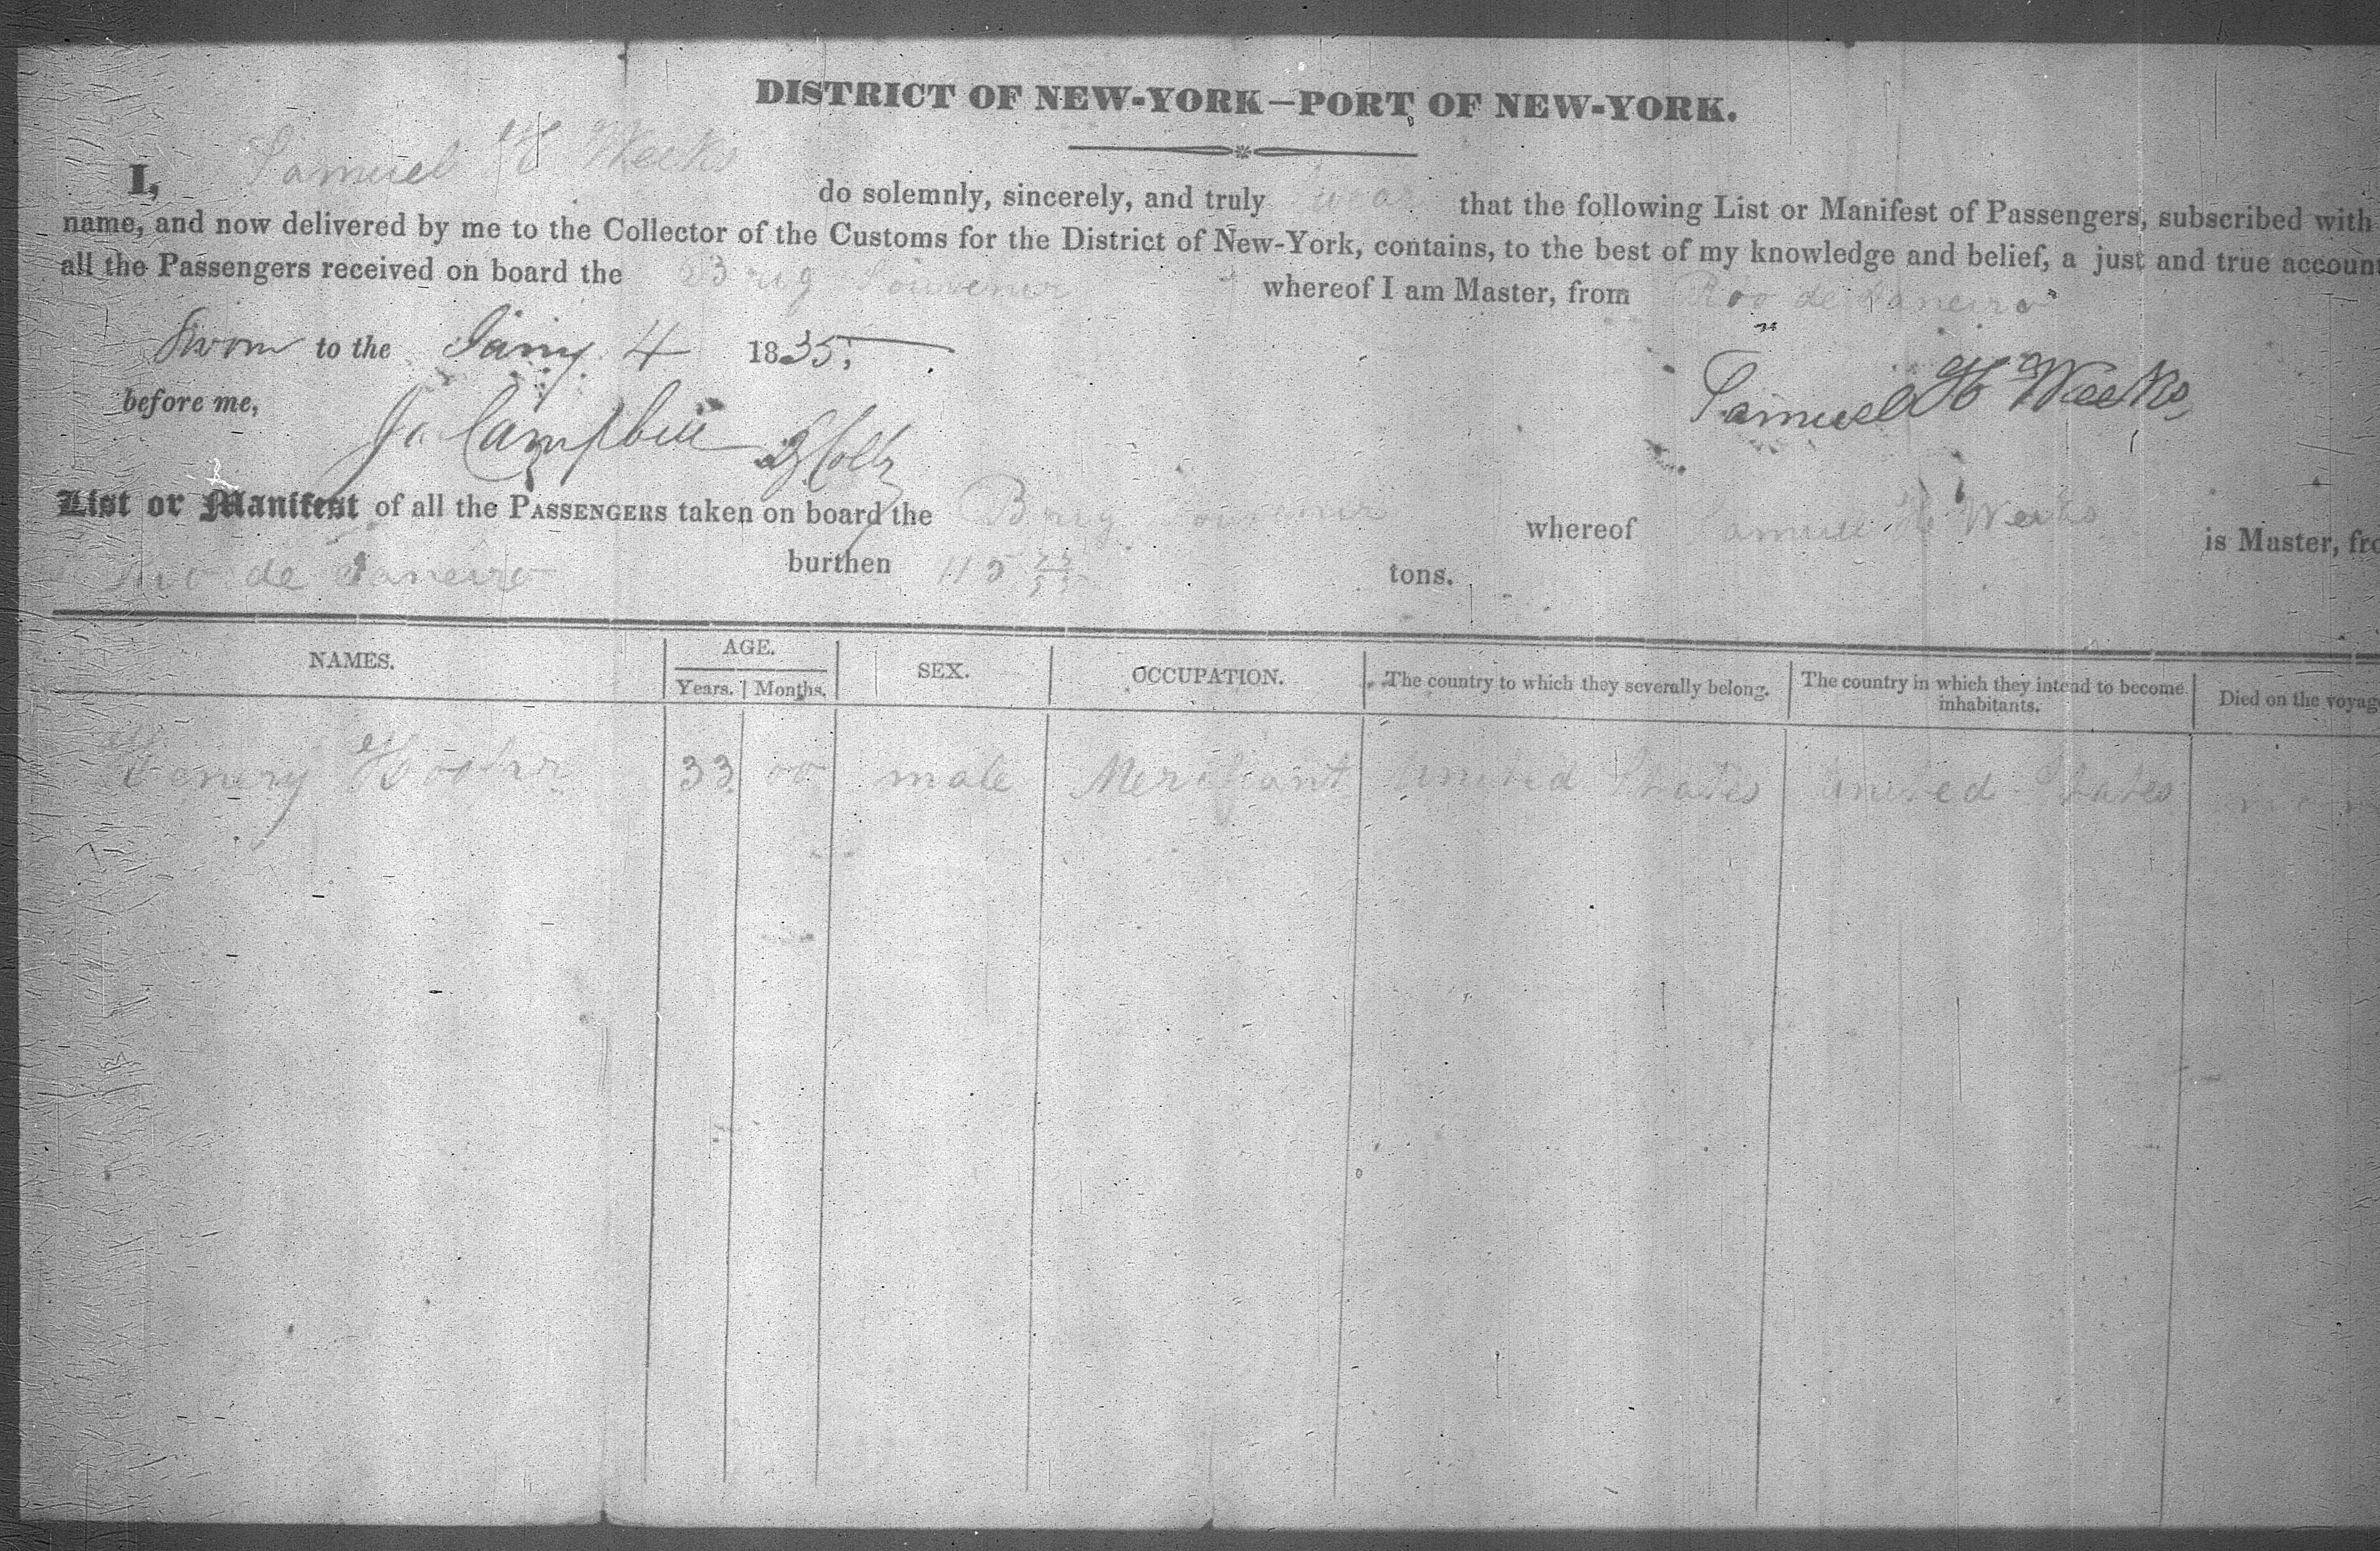 DISTRICT OF NEW-YORK—PORT OF NEW-YORK.
I, Samuel H Weeks do solemnly, sincerely, and truly that the following List or Manifest of Passengers, subscribed with
name, and now delivered by me to the Collector of the Customs for the District of New-York, contains, to the best of my knowledge and belief, a just and true account
all the Passengers received on board the Brig Souvenir whereof I am Master, from Rio de Janeiro
Sworn to the Jany 4 1835,
before me,
Samuel H Weeks
Campbell
List or Manifest of all the PASSENGERS taken on board the Brig Souvenir whereof Samuel H Weeks is Master, fro
Rio de Janeiro burthen tons.
NAMES. AGE. SEX. OCCUPATION. The country to which they severally belong. The country in which they intend to become inhabitants. Died on the voyag
Years. Months.
Henery 33 00 male Merchant United States United States